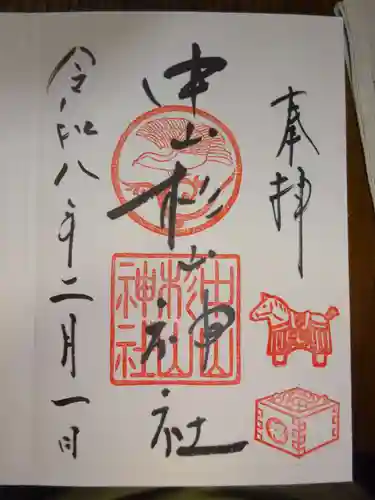 奉拝
中山杉山神社
令和八年二月一日
中山
杉山
神社